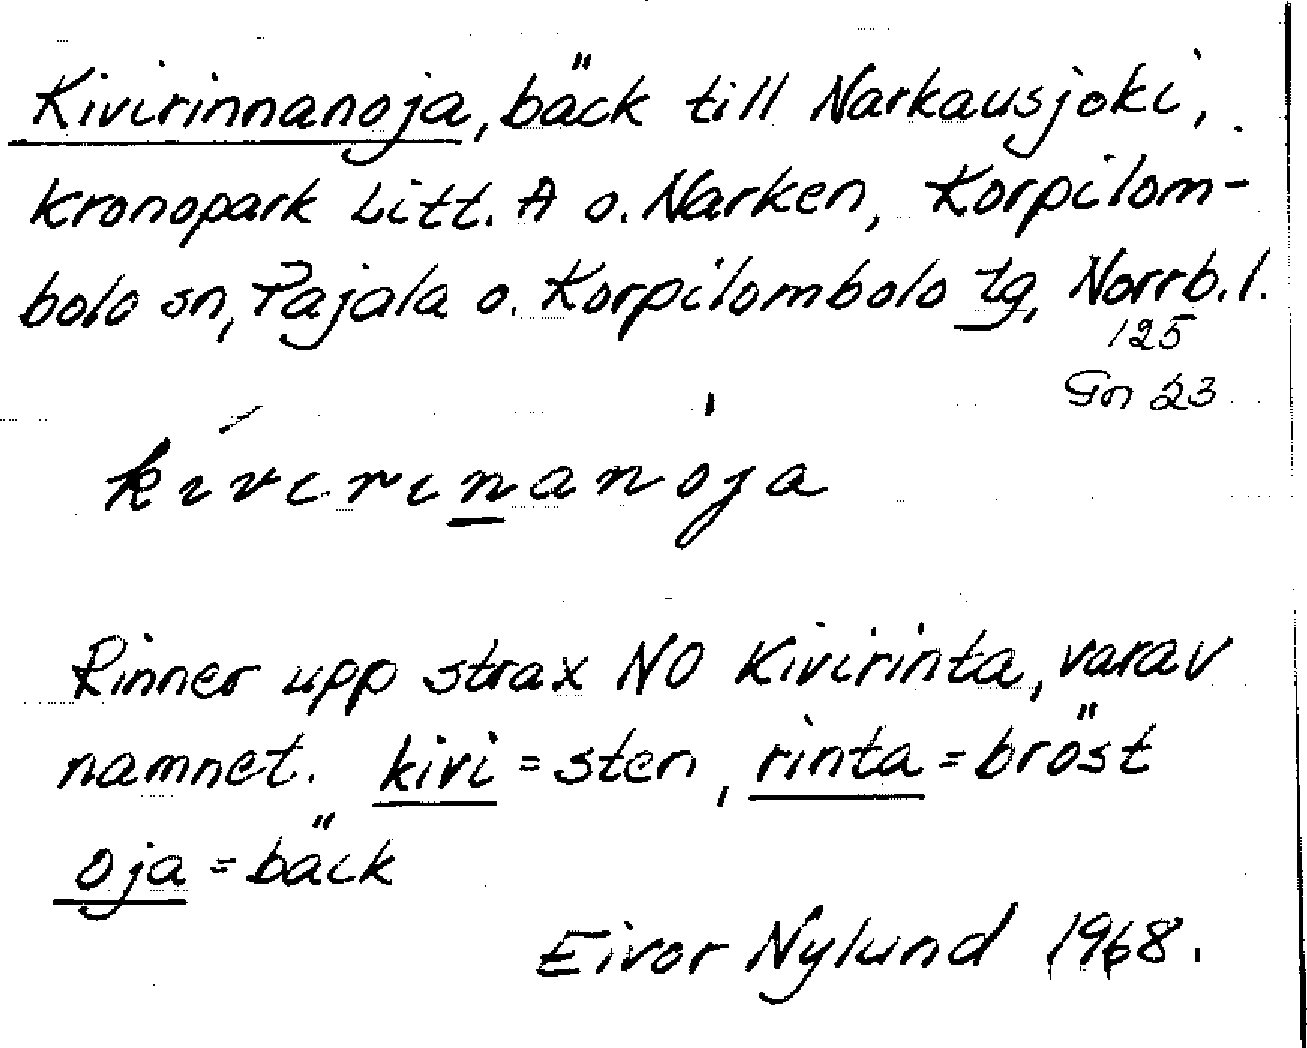 Kivirinnanoja, bäck till Narkausjoki,
kronopark Litt. A o. Narken, Korpilom-
bolo sn, Pajala o. Korpilombolo tg, Norrb. l.
125
Gn 23
kivirinanoja
Rinner upp strax NO Kivirinta, varav
namnet. kivi = sten, rinta = bröst
oja = bäck
Eivor Nylund 1968.